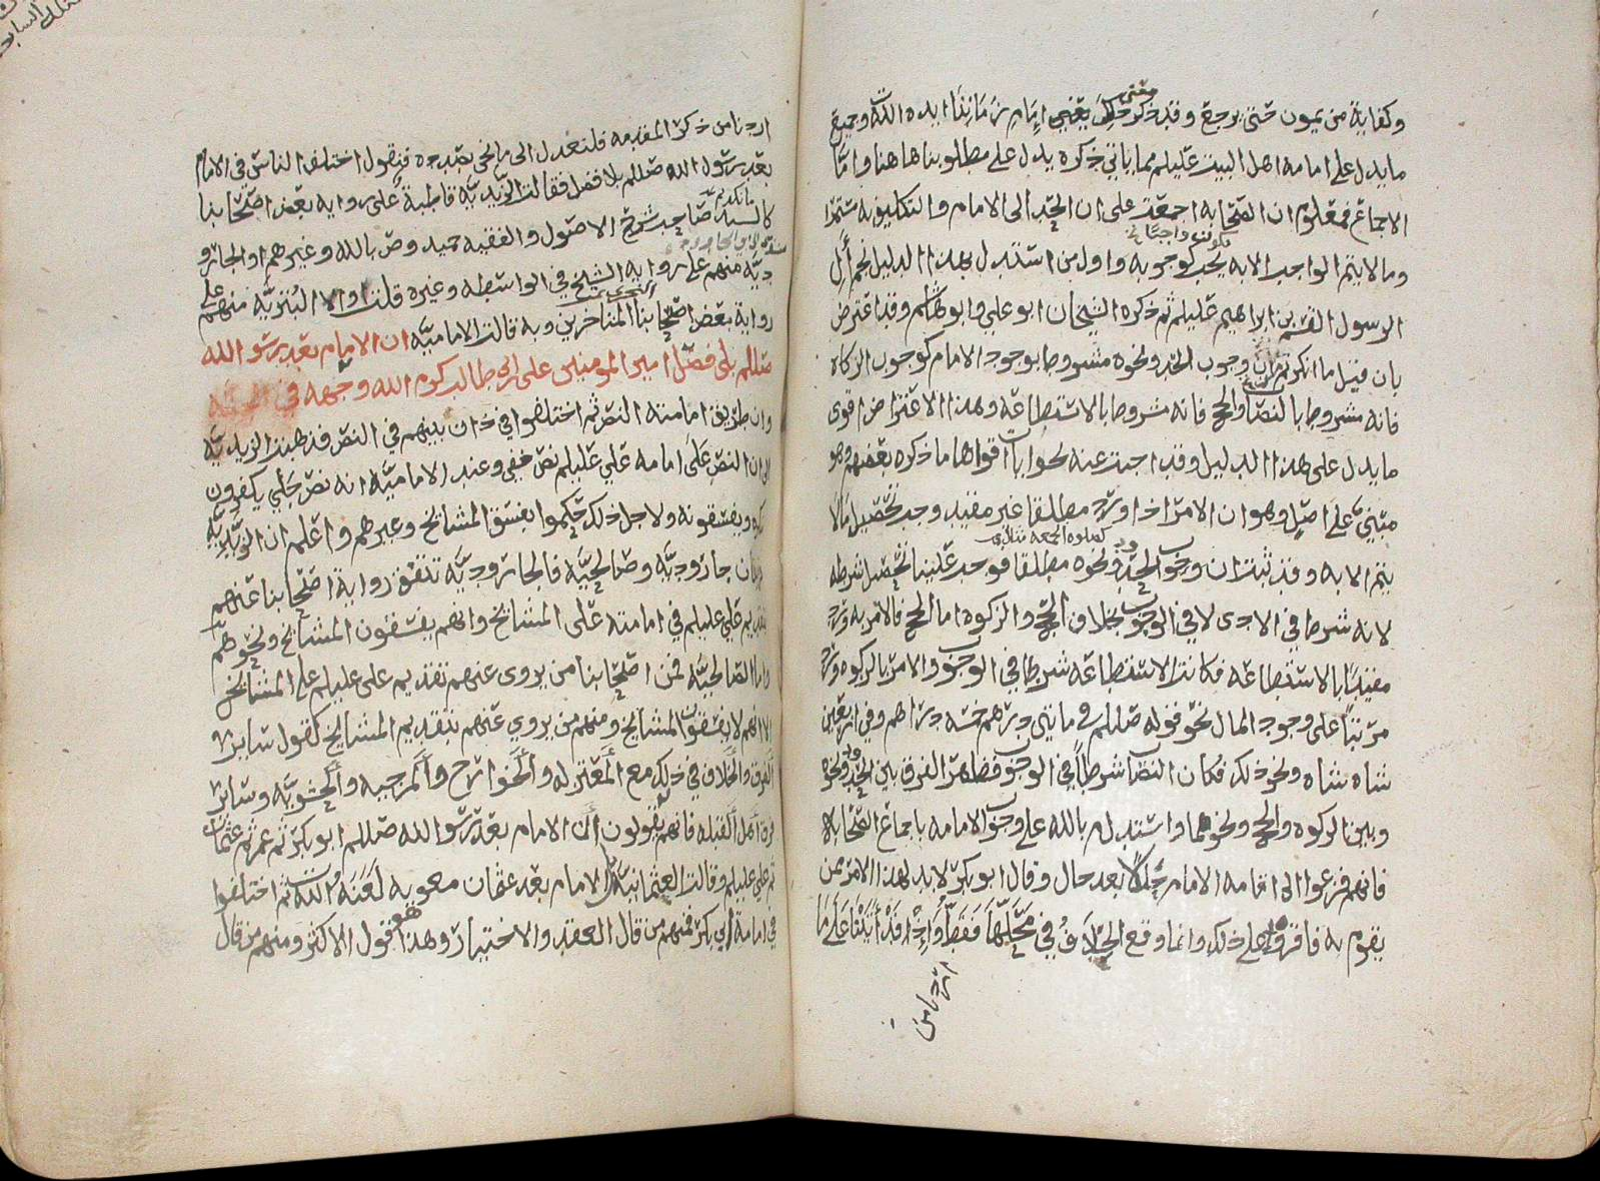 وكفاية من يمون حتى يرجع وقد ذكر معنى ذلك يعني إمام زماننا ايده الله وجميع
ما يدل على امامه اهل البيت عليلم مما ياتي ذكره يدل على مطلوبنا هاهنا واما
الاجماع فمعلوم ان الصحابه اجمعت على ان الحد الى الامام والتكليف به مستمر
وما لا يتم الواجب الا به يجب كوجوبه واول من استدل بهذا الدليل نجم أل
الرسول القسم بن ابراهيم عليلم ثم ذكره الشيخان ابو علي وابو هاشم وقد اعترض
بان قيل ما انكرتم ان وجوب الحد ونحوه مشروط بوجود الامام كوجوب الزكاة
فانه مشروط بالنصاب والحج فانه مشروط بالاستطاعه وهذا الاعتراض اقوى
ما يدل على هذا الدليل وقد اجيب عنه بجوابات اقواها ما ذكره بعضهم وهو
مبني على اصل وهو ان الامر اذا ورد مطلقا غير مقيد وجب تحصيل مالا
يتم الا به وقد ثبت ان وجوب الحد ونحوه مطلقا فوجب علينا تحصيل شرطه
كصلوة الجمعه
لانه شرط في الادى لا في الوجوب بخلاف الحج والزكوة اما الحج فالامر به ورد
مقيدا بالاستطاعه فكانت الاستطاعه شرطا في الوجوب والامر بالزكوه ورد
مرتبا على وجود المال نحو قوله صللم في مائتي درهم خمسه دراهم وفي اربعين
شاه شاه ونحو ذلك فكان النصاب شرطاً في الوجوب فظهر الفرق بين الحد ونحوه
وبين الزكوه والحج ونحوهما واستدل م بالله على وجوب الامامه باجماع الصحابه
فانهم فزعوا الى اقامه الامام بعد حال وقال ابو بكر لا بد لهذا الامر ممن
يقوم به فاقروه على ذلك وانما وقع الخلاف في محلها فقط وإذ قد أتينا على ما
اردنا من
اردنا من ذكر المقدمه فلنعدل الى ما نحن بصدده فنقول اختلف الناس في الامام
بعد رسول الله صللم بلا فصل فقالت الزيديه قاطبة على روايه بعض اصحابنا
كالسيد مانكديم صاحب شرح الاصول والفقيه حميد وص بالله وغيرهم او الجارو
ديه منهم على روايه الشيخ في الواسطه وغيره قلت اولا البتريه منهم على
رواية بعض اصحابنا المتاخرين وبه قالت الاماميه ان الامام بعد رسول الله
صللم بلى فصل امير المومنين علي ابن ابي طالب كرم الله وجهه في الجنه
وان طريق امامته النص ثم اختلفوا في ذات بينهم في النص فذهبت الزيديه
الى ان النص على امامه علي عليلم نص خفي وعند الاماميه انه نص جلي يكفرون
ويفسقونه ولاجل ذلك حكموا بفسق المشائخ وغيرهم واعلم ان الزيديه
فرقتان جاروديه وصالحيه فالجاروديه تتفق رواية اصحابنا عنهم
تقديم علي عليلم في امامته على المشائخ وانهم يفسقون المشائخ ونحوهم
واما الصالحيه فمن اصحابنا من يروى عنهم تقديم على عليلم على المشائخ
الا انهم لا يفسقون المشائخ ومنهم من يروي عنهم بتقديم المشايخ كقول سائر
الفرق والخلاف في ذلك مع المعتزله والخوارج والمرجيه والحشويه وسائر
فرق أهل القبله فانهم يقولون أن الامام بعد رسول الله صللم ابو بكر ثم عمر ثم عثمان
ثم علي عليلم وقالت العثمانية ان الامام بعد عثمان معويه لعنه الله ثم اختلفوا
في امامة أبي بكر فمنهم من قال العقد والاختيار وهذا هو قول الاكثر ومنهم من قال